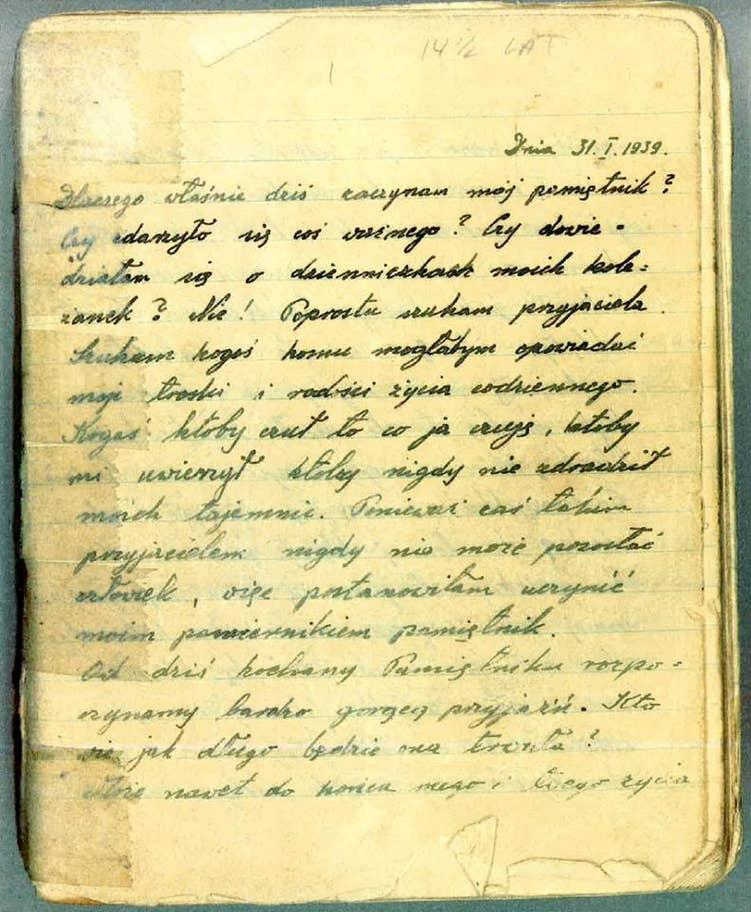 14 ½ LAT
1
Dnia 31.I.1939.
Dlaczego właśnie dziś zaczynam mój pamiętnik?
Czy zdarzyło się coś ważnego? Czy dowie-
działam się o dzienniczkach moich kole=
żanek? Nie! Poprostu szukam przyjaciela.
Szukam kogoś komu mogłabym opowiadać
moje troski i radości życia codziennego.
Kogoś któby czuł to co ja czuję, któby
mi uwierzył któby nigdy nie zdradził
moich tajemnic. Ponieważ zaś takim
przyjacielem nigdy nie może pozostać
człowiek, więc postanowiłam uczynić
moim powiernikiem pamiętnik.
Od dziś kochany Pamiętniku rozpo=
czynamy bardzo gorącą przyjaźń. Kto
wie jak długo będzie ona trwała?
Może nawet do końca mego i Twego życia